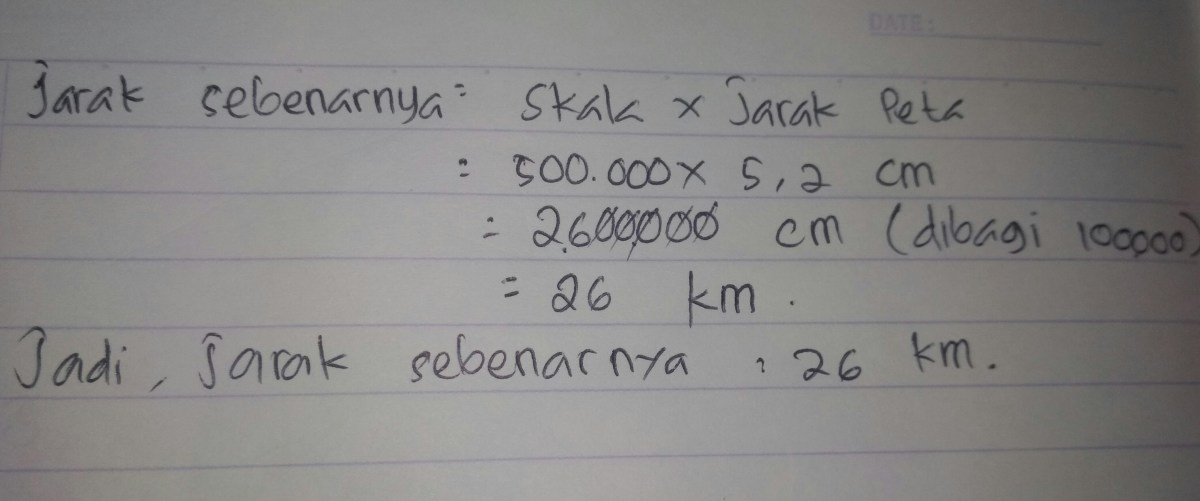 DATE:
Jarak sebenarnya = Skala x Jarak Peta
= 500.000 x 5,2 cm
= 2.600.000 cm (dibagi 100.000)
= 26 km.
Jadi, Jarak sebenarnya : 26 km.